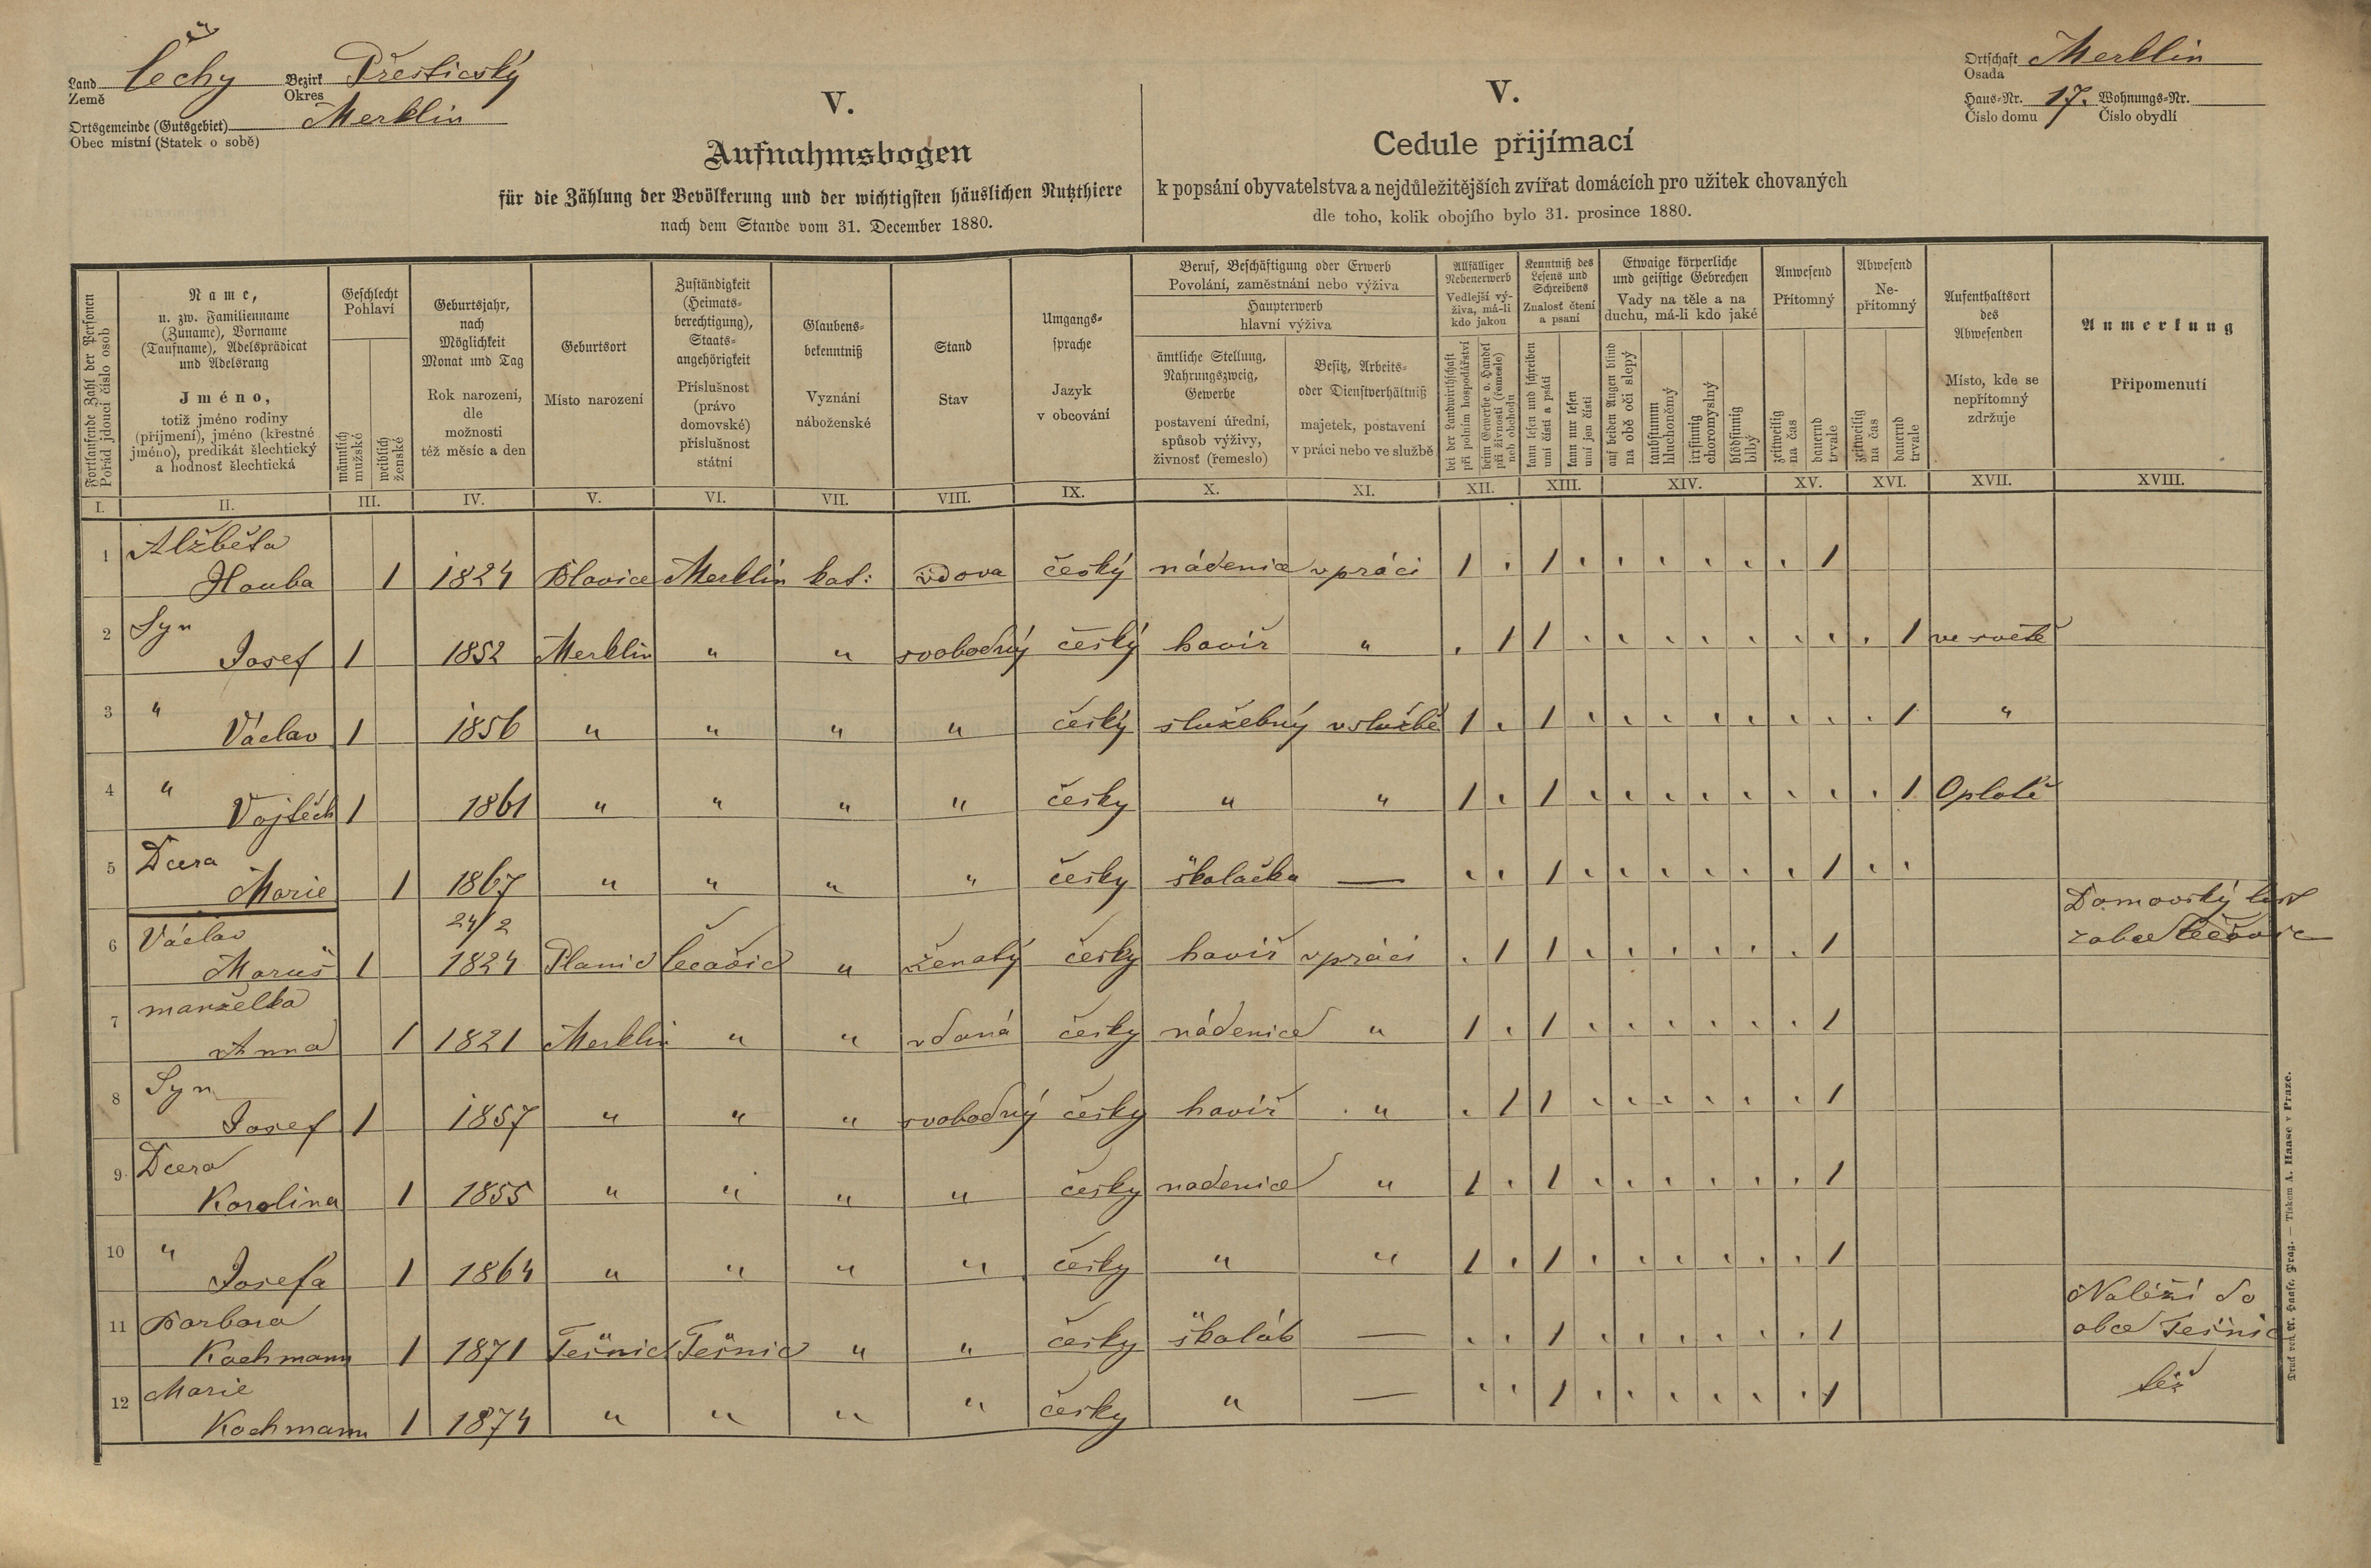 Land Čechy Bezirk Přestický
Země Okres
Ortsgemeinde (Gutsgebiet) Merklin
Obec místní (Statek o sobě)
V.
Aufnahmsbogen
für die Zählung der Bevölkerung und der wichtigsten häuslichen Nutzthiere
nach dem Stande vom 31. December 1880.
V.
Cedule přijímací
k popsání obyvatelstva a nejdůležitějších zvířat domácích pro užitek chovaných
dle toho, kolik obojího bylo 31. prosince 1880.
Ortschaft Merklin
Osada
Haus-Nr. 17. Wohnungs-Nr.
Číslo domu Číslo obydlí
Fortlaufende Zahl der Personen
Pořád jdoucí číslo osob
Name,
u. zw. Familienname
(Zuname), Vorname
(Taufname), Adelsprädicat
und Adelsrang
Jméno,
totiž jméno rodiny
(příjmení), jméno (křestné
jméno), predikát šlechtický
a hodnosť šlechtická
Geschlecht
Pohlaví
männlich
mužské
weiblich
ženské
Geburtsjahr,
nach
Möglichkeit
Monat und Tag
Rok narození,
dle
možnosti
též měsíc a den
Geburtsort
Místo narození
Zuständigkeit
(Heimats-
berechtigung),
Staats-
angehörigkeit
Příslušnost
(právo
domovské)
příslušnost
státní
Glaubens-
bekenntniß
Vyznání
náboženské
Stand
Stav
Umgangs-
sprache
Jazyk
v obcování
Beruf, Beschäftigung oder Erwerb
Povolání, zaměstnání nebo výživa
Haupterwerb
hlavní výživa
ämtliche Stellung,
Nahrungszweig,
Gewerbe
postavení úřední,
spůsob výživy,
živnosť (řemeslo)
Besitz, Arbeits-
oder Dienstverhältniß
majetek, postavení
v práci nebo ve službě
Allfälliger
Nebenerwerb
Vedlejší vý-
živa, má-li
kdo jakou
bei der Landwirthschaft
při polním hospodářství
beim Gewerbe o. Handel
při živnosti (řemesle)
neb obchodu
Kenntniß des
Lesens und
Schreibens
Znalosť čtení
a psaní
kann lesen und schreiben
umí čísti a psáti
kann nur lesen
umí jen čísti
Etwaige körperliche
und geistige Gebrechen
Vady na těle a na
duchu, má-li kdo jaké
auf beiden Augen blind
na obě oči slepý
taubstumm
hluchoněmý
irrsinnig
choromyslný
blödsinnig
blbý
Anwesend
Přítomný
zeitweilig
na čas
dauernd
trvale
Abwesend
Ne-
přítomný
zeitweilig
na čas
dauernd
trvale
Aufenthaltsort
des
Abwesenden
Místo, kde se
nepřítomný
zdržuje
Anmerkung
Připomenutí
I. II. III. IV. V. VI. VII. VIII. IX. X. XI. XII. XIII. XIV. XV. XVI. XVII. XVIII.
1 Alžběta
Houba 1 1824 Blovice Merklin kat: vdova český nádenice v práci 1 . 1 . . . . . . 1
2 Syn
Josef 1 1852 Merklin " " svobodný český havíř " . 1 1 . . . . . . . . 1 ve světě
3 "
Václav 1 1856 " " " " český služebný v službě 1 . 1 . . . . . . . . 1 "
4 "
Vojtěch 1 1861 " " " " česky " " 1 . 1 . . . . . . . . 1
5 Dcera
Marie 1 1867 " " " " česky školačka — . . 1 . . . . . . 1 . .
24/2
6 Václav
Maruš 1 1824 Planic " ženatý česky havíř v práci . 1 1 . . . . . . 1
Domovský list
z obce
7 manželka
Anna 1 1821 Merklin " " vdaná česky nádenice " 1 . 1 . . . . . . 1
8 Syn
Josef 1 1857 " " " svobodný česky havíř " . 1 1 . . . . . . 1
9. Dcera
Karolina 1 1855 " " " " česky nadenice " 1 . 1 . . . . . . 1
10 "
Josefa 1 1864 " " " " česky " " 1 . 1 . . . . . . 1
11 Barbora
Kochmann 1 1871 Tešnic Tešnic " " česky školák — . . 1 . . . . . . 1
Naléží do
obce Tešnic
12 Marie
Kochmann 1 1874 " " " " česky " — . . 1 . . . . . . 1 též
Druck von A. Haase, Prag. — Tiskem A. Haase v Praze.